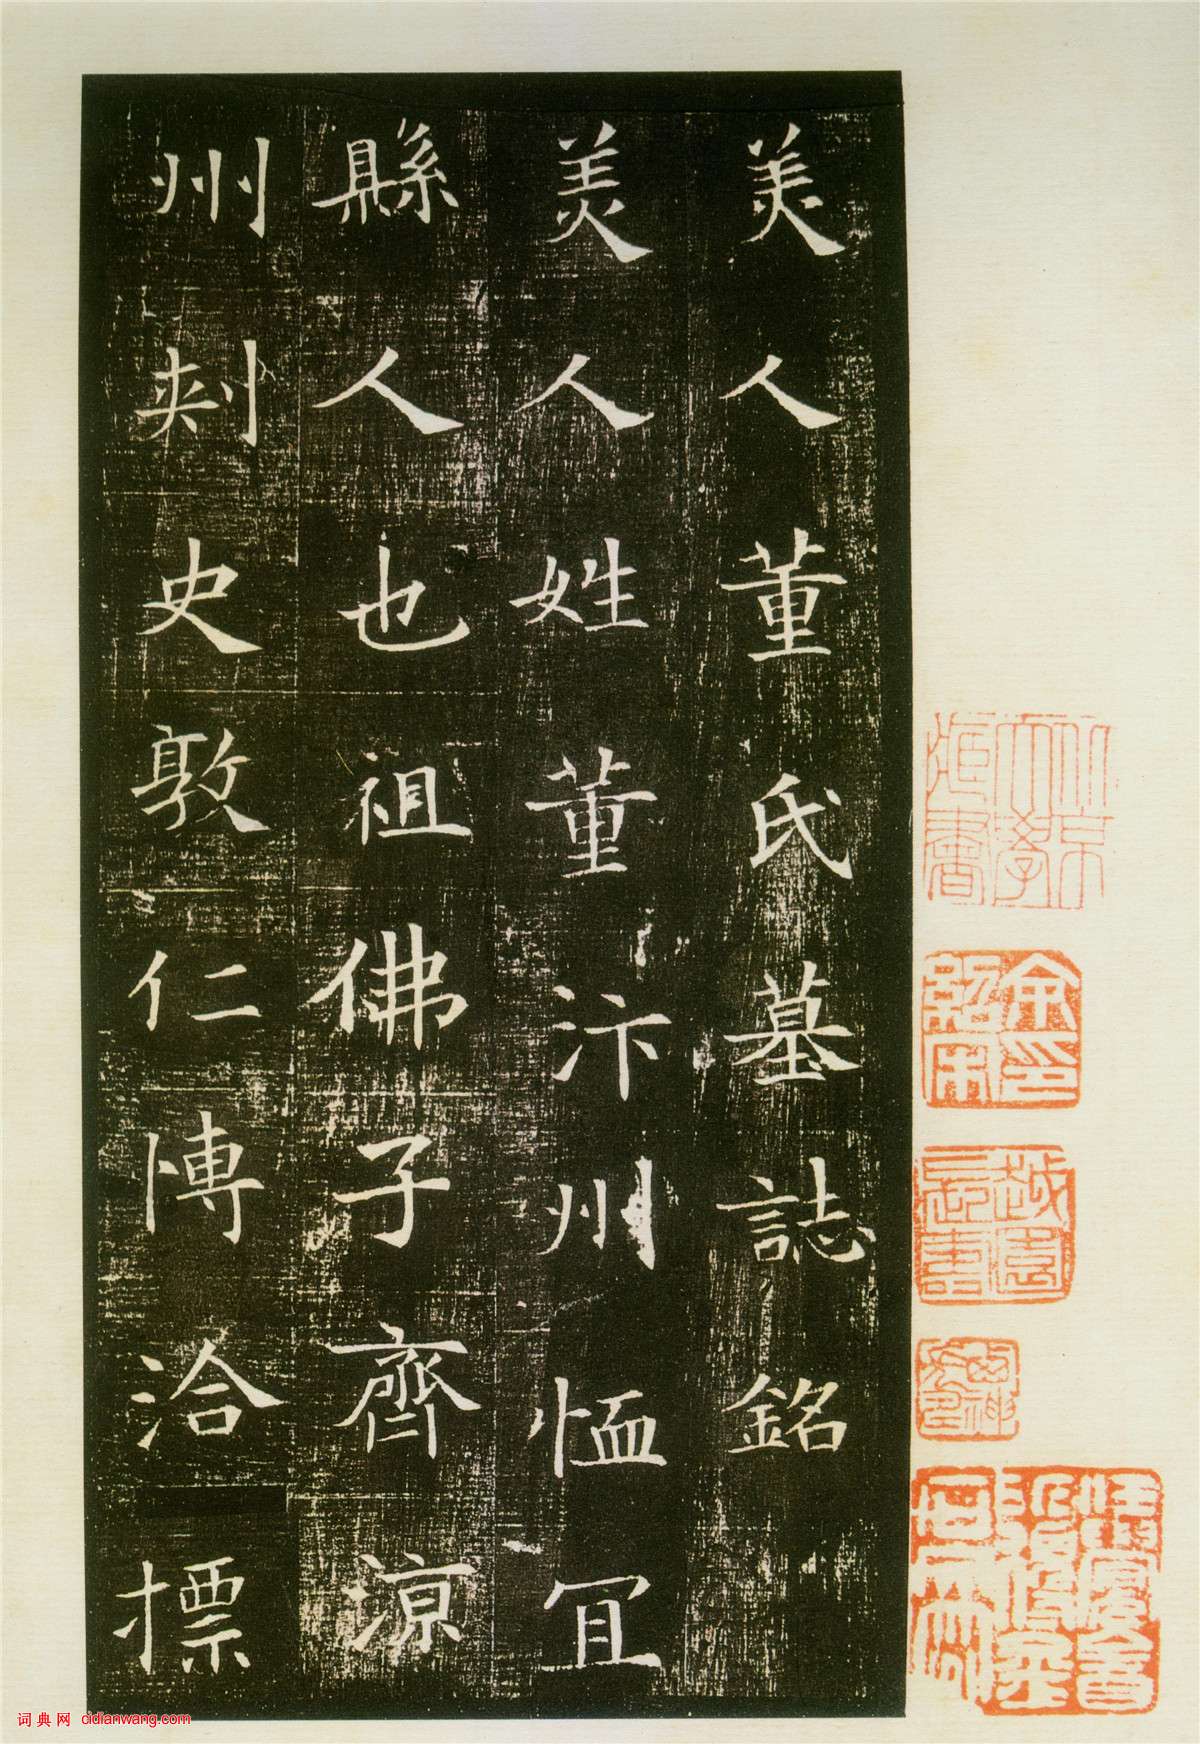 美人董氏墓誌銘
美人姓董汴州恤冝
縣人也祖佛子齊涼
州刾史敦仁愽洽標
余印紹宋
词典网 cidianwang.com